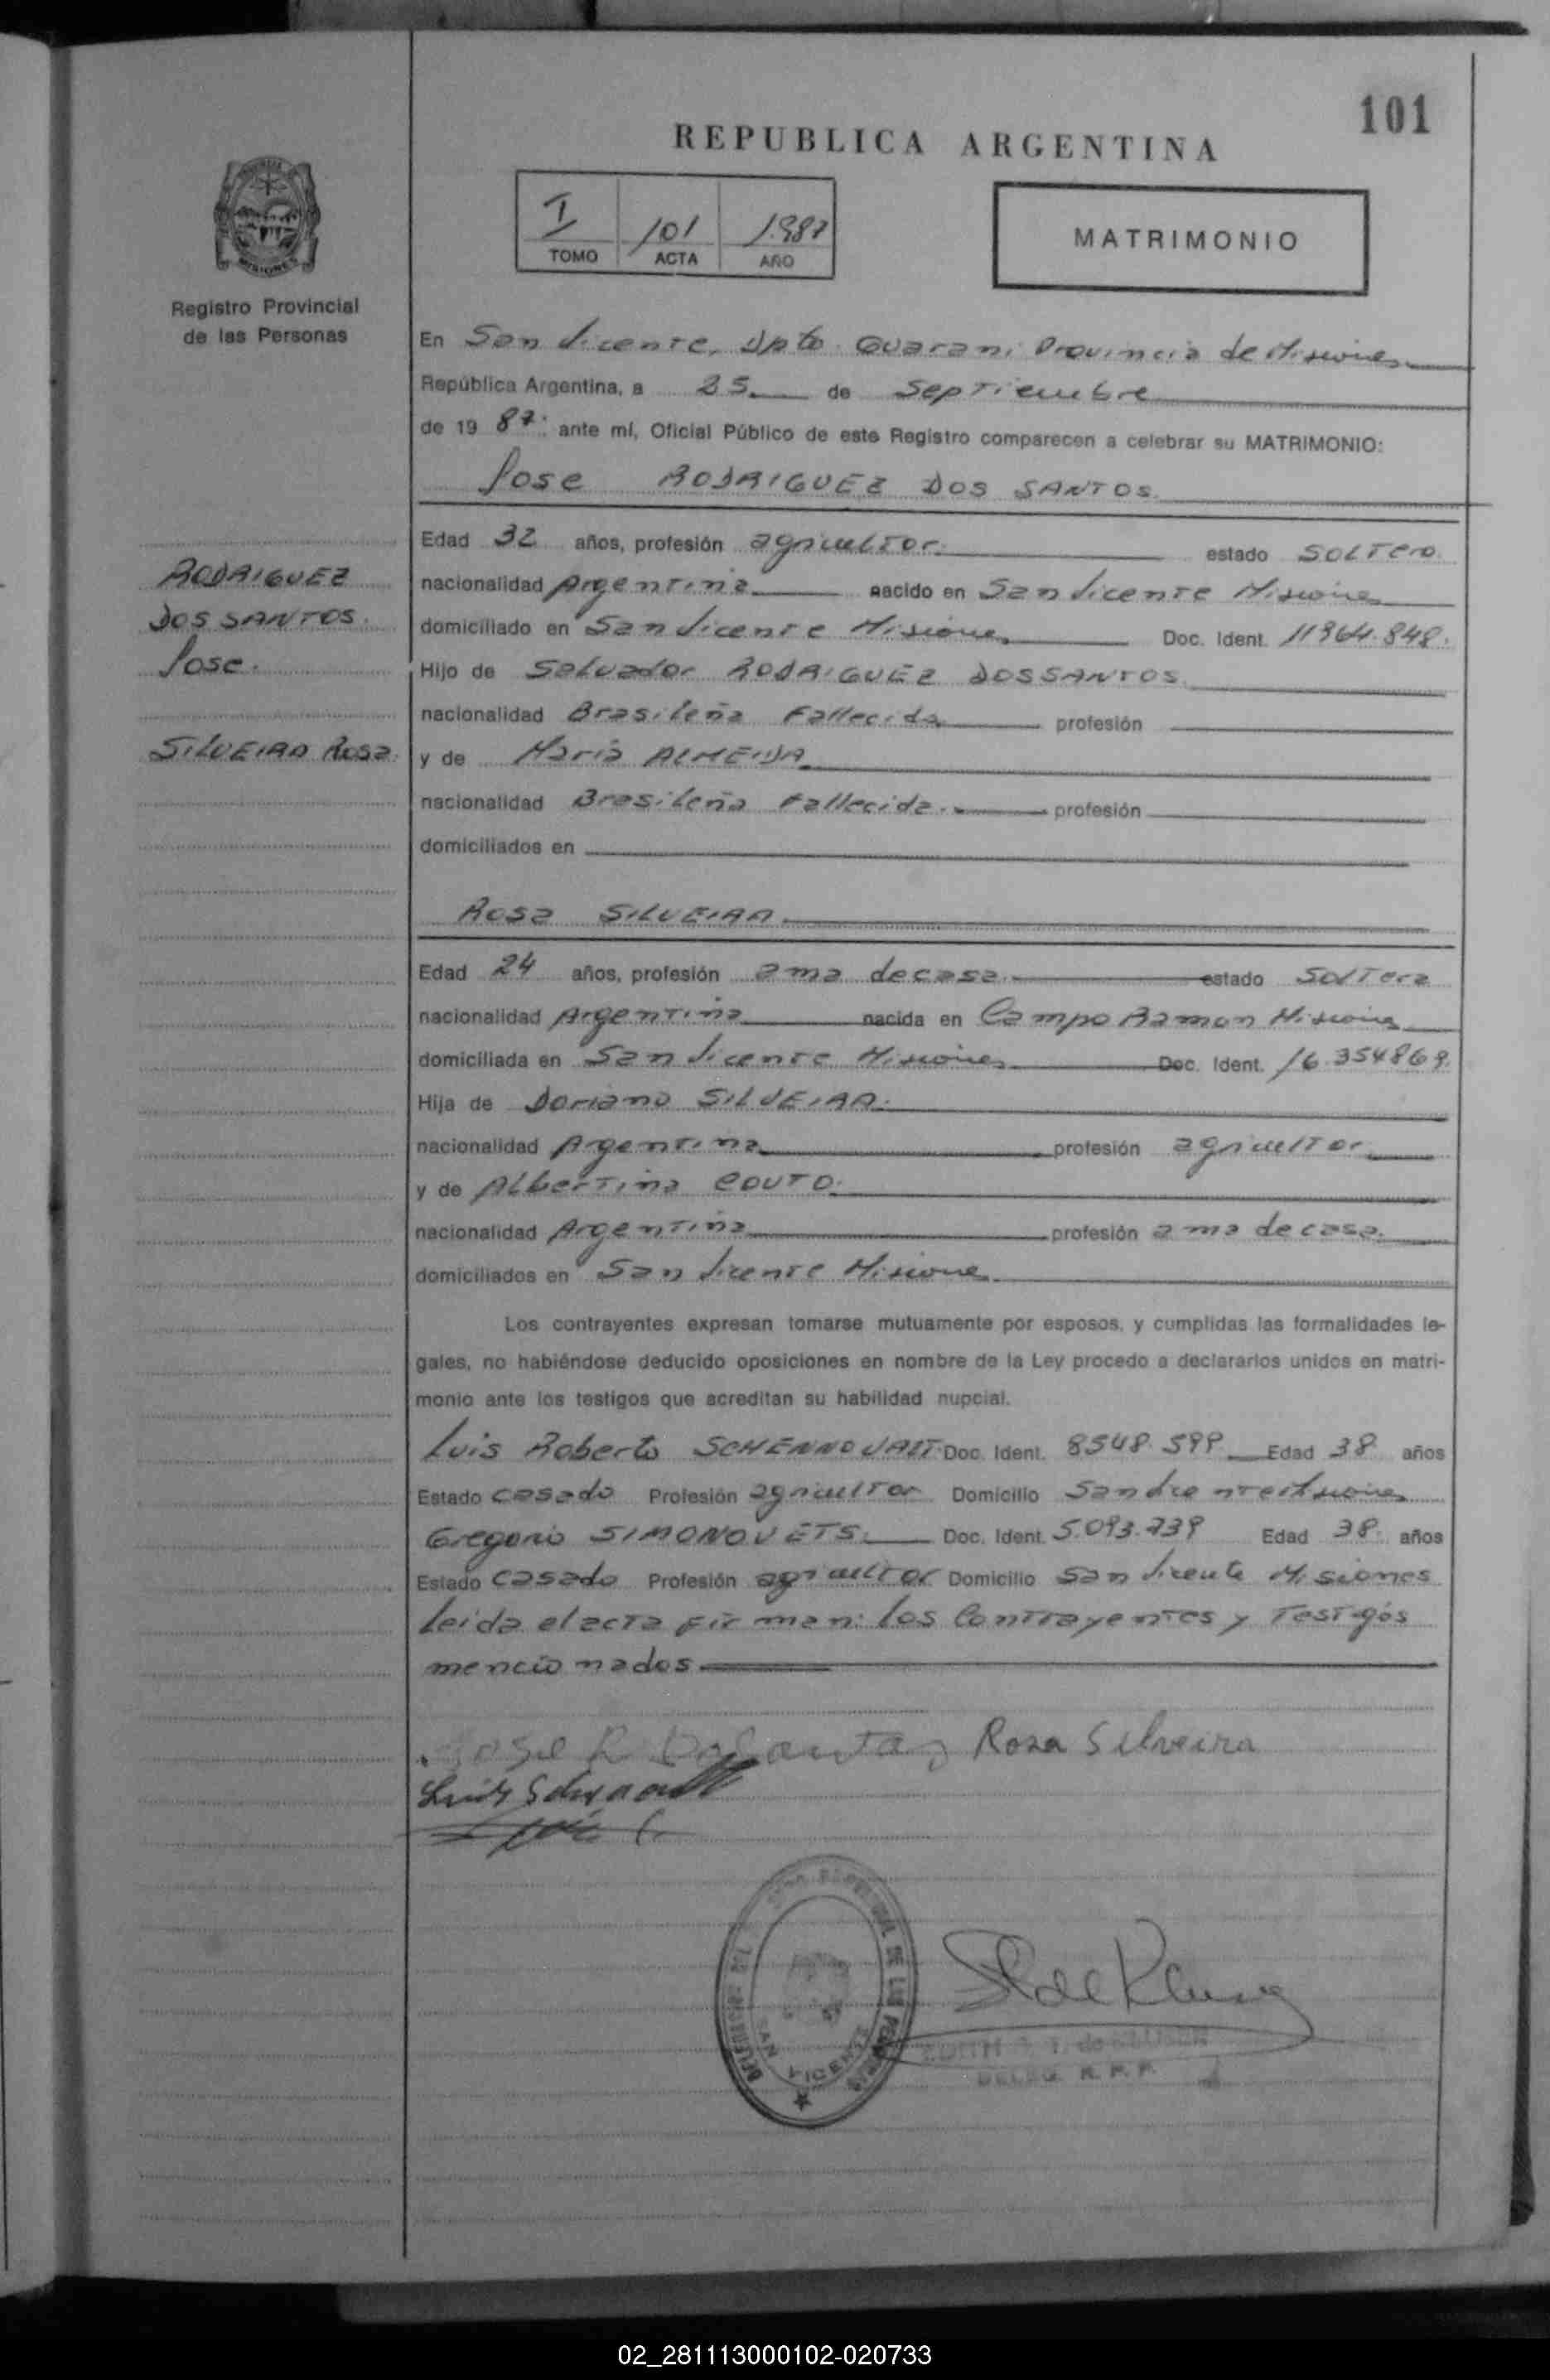 101
REPUBLICA ARGENTINA
I 101 1.987
TOMO ACTA AÑO
MATRIMONIO
MISIONES
Registro Provincial
de las Personas
En San Vicente, Dpto. Guarani Provincia de Misiones
República Argentina, a 25 de Septiembre
de 19 87. ante mí, Oficial Público de este Registro comparecen a celebrar su MATRIMONIO:
Jose RODRIGUEZ DOS SANTOS
Edad 32 años, profesión agricultor. estado SOLTERO.
RODRIGUEZ
nacionalidad Argentina nacido en San Vicente Misiones
DOS SANTOS.
domiciliado en San Vicente Misiones Doc. Ident. 11964.848.
Jose.
Hijo de Salvador RODRIGUEZ DOS SANTOS
nacionalidad Brasileña Fallecido profesión
SILVEIRA Rosa.
y de Maria ALMEIDA
nacionalidad Brasileña Fallecida. profesión
domiciliados en
Rosa SILVEIRA
Edad 24 años, profesión ama de casa. estado Soltera
nacionalidad Argentina nacida en Campo Ramon Misiones
domiciliada en San Vicente Misiones Doc. Ident. 16.354869.
Hija de Doriano SILVEIRA.
nacionalidad Argentina profesión agricultor
y de Albertina COUTO.
nacionalidad Argentina profesión ama de casa.
domiciliados en San Vicente Misiones
Los contrayentes expresan tomarse mutuamente por esposos, y cumplidas las formalidades le-
gales, no habiéndose deducido oposiciones en nombre de la Ley procedo a declararlos unidos en matri-
monio ante los testigos que acreditan su habilidad nupcial.
Luis Roberto Doc. Ident. 8548.599 Edad 38 años
Estado casado Profesión agricultor Domicilio San Vicente Misiones
Gregorio SIMONOVETS. Doc. Ident. 5.093.739 Edad 38. años
Estado casado Profesión agricultor Domicilio San Vicente Misiones
Leida el acta firman: los Contrayentes y Testigos
mencionados
Jose R Rosa Silveira
Luis
DE LAS PERSONAS
SAN VICENTE
de
DELEG. R. P. P.
02_281113000102-020733